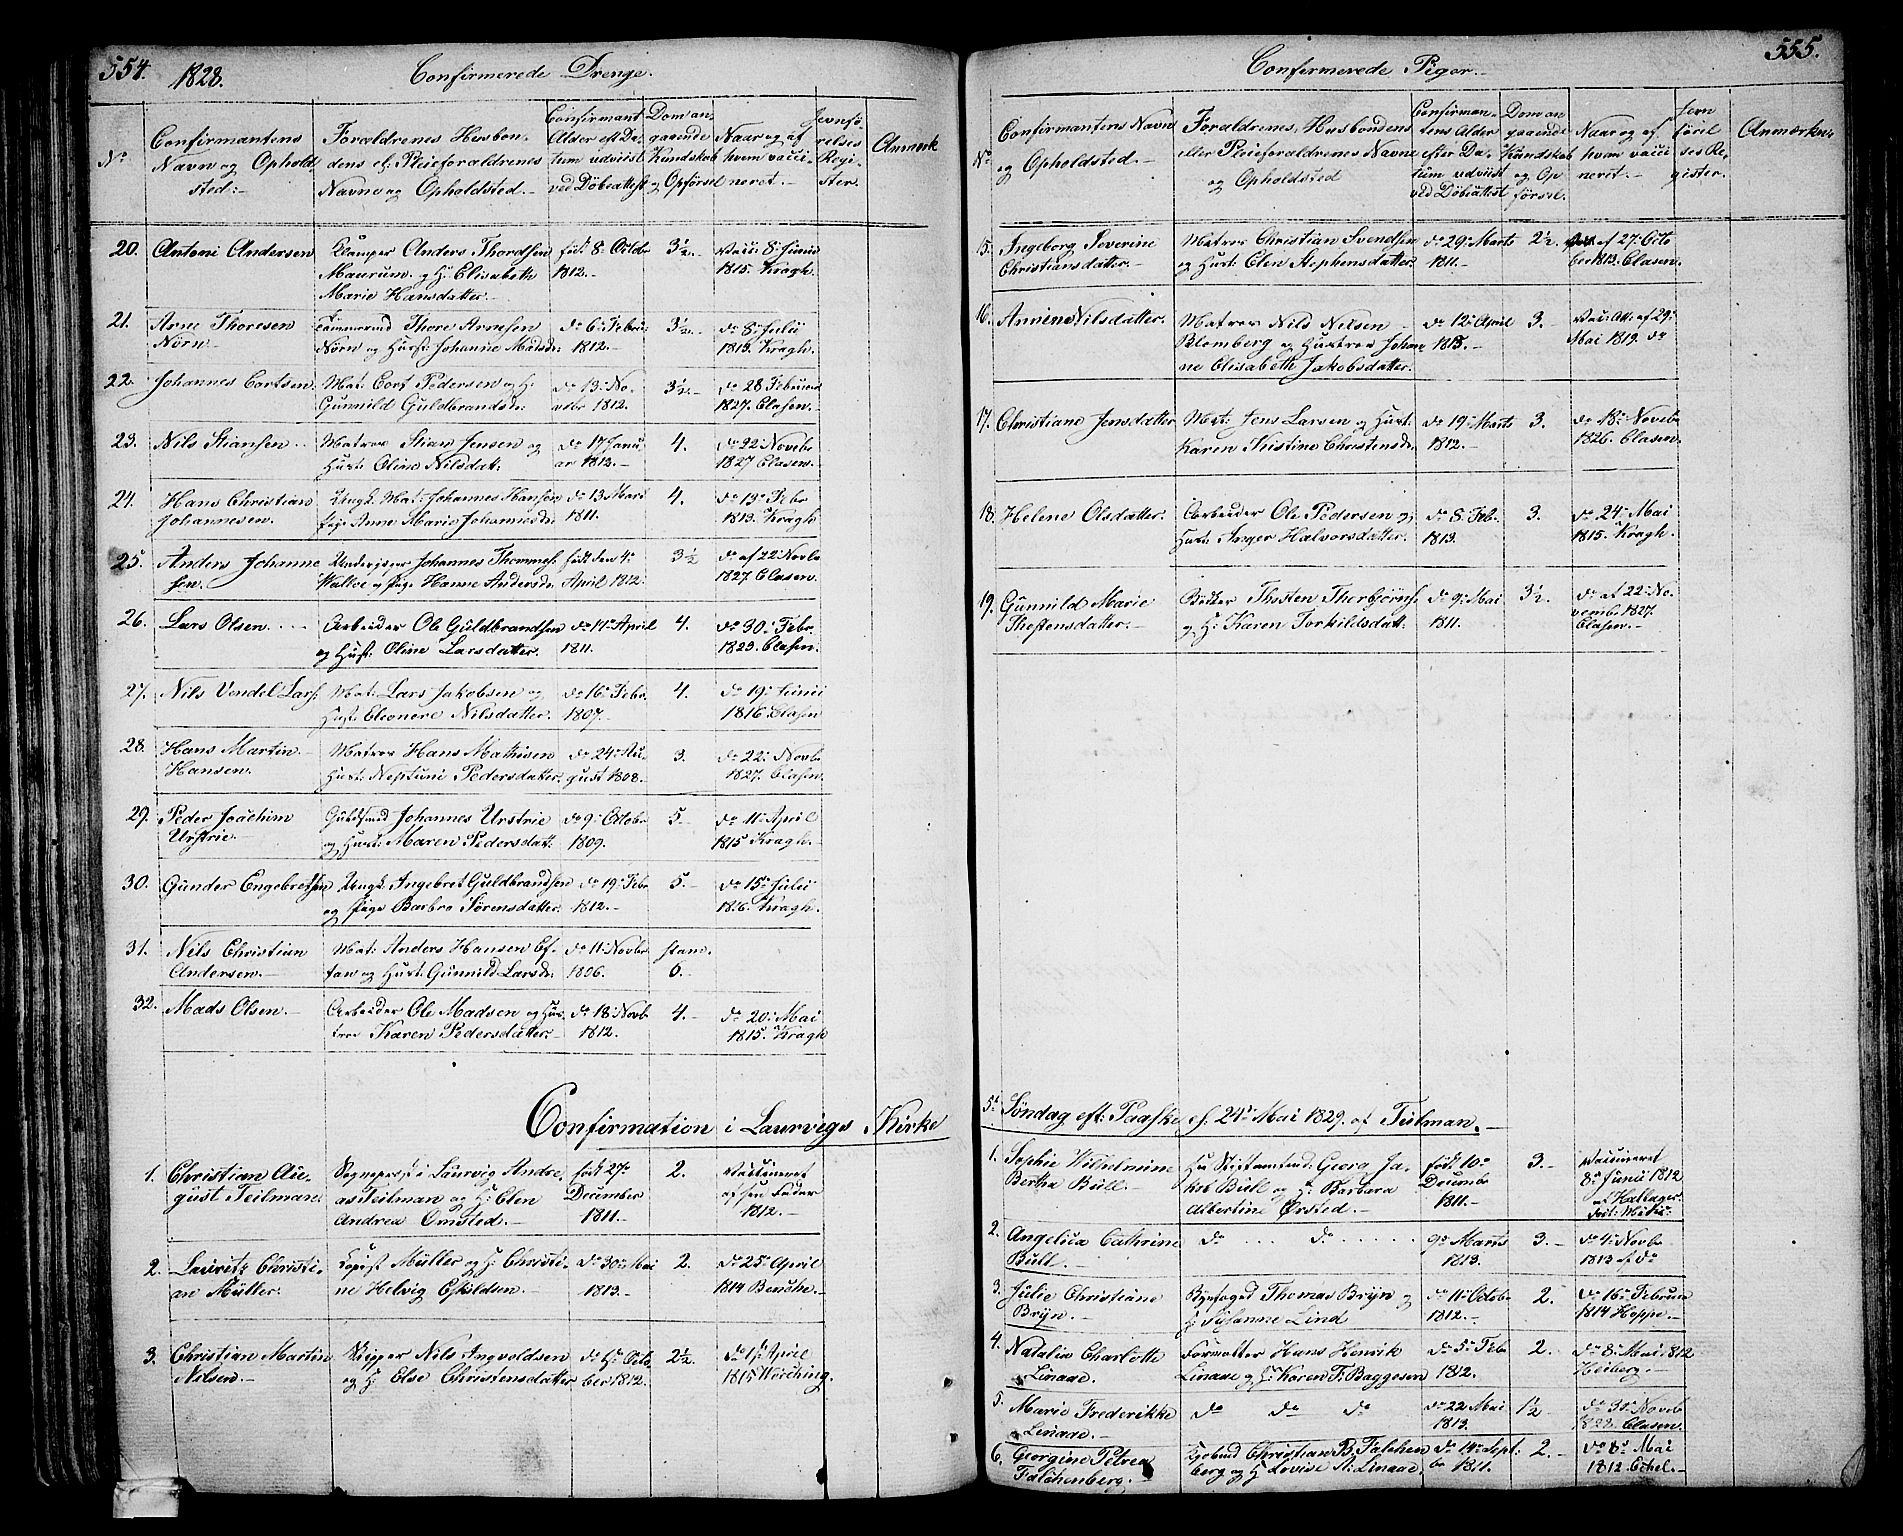 554.
1828.
Confirmerede Drenge.
No
Confirmantens
Navn og Opholds
sted:-
Foraldrenes Husbon-
dens el. Pleieforaldrenes
Navne og Opholdsted.-
Confirmant
Alder eft Da-
tum udviist
ved Döbeattest
Dom an-
gaaende
Kundskab
og Opförsel
Naar og af
hvem vacci-
neret.-
Jevnfö-
relses
Regi-
ster.
Anmerk
20. Antoni Andersen
Klamper Anders Thordsen
Maurum. og H: Elisabeth
Marie Hansdatter.-
föd: 8: Octbr
1812.-
3½.-
Vacc: 8: Junii
1815. Kragh.
21. Arne Thoresen
Nörn.-
Tömmermd Thore Arnesen
Nörn og Hust: Johanne Madsd:
do 6: Febr:
1812.-
3½.-
do 8: Julii
1813. Kragh.
22. Johannes Cortsen
Mat: Cort Pedersen og H:
Gunnild Guldbrandsd:
do 13: No-
vbr 1812.-
3½.-
do 28 Februar
1827. Clasen.-
23. Nils Stiansen
Matros Stian Jensen og
Hust: Oline Nilsdat:
do 17 Janu-
ar 1812.-
4.
do 22: Novebr
1827 Clasen.
24. Hans Christian
Johannesen.
Ungk. Mat: Johannes Hansen
Pige Anne Marie Johannesd:
do 13 Mai
1811.
4.
do 13: Febr
1813. Kragh
25. Anders Johanne
sen.
Underjæger Johannes Thommes:
Walloe og Pige Hanne Andersd:
födt den 4:
April 1812:
3½
do af 22: Novbr
1827 Clasen.
26. Lars Olsen
Arbeider Ole Guldbrandsen
og Hust: Oline Larsdatter.
do 17: April
1811.
4.
do 30: Febr.
1823. Clasen.
27. Nils Vendel Lars:
Mat: Lars Jakobsen og
Hust: Eleonore Nilsdatter.
do 16: Febr.
1807.-
4.
do 19: Junii
1816. Clasen
28. Hans Martin
Hansen.
Matros Hans Mathisen
Hust: Neptuni Pedersdatter.
do 24: Au-
gust 1808.
3.
do 22: Novbr
1827. Clasen.
29. Peder Joachim
Urstrie.-
Guldsmd Johannes Urstrie
og Hust: Maren Pedersdatt:
do 9: Octobr
1809.
5.-
do 11: April
1815 Kragh.
30. Gunder Engebretsen
Ungk. Ingebret Guldbrandsen
og Pige Barbro Sörensdatter.
do 19: Febr
1812.-
5.-
do 15: Julii
1816. Kragh.
31. Nils Christian
Andersen.-
Mat: Anders Hansen Ef-
tan og Hust: Gunnild Larsd:
do 11: Novbr
1806.
stam.
6.-
32. Mads Olsen.-
Arbeider Ole Madsen og Hus-
troe Karen Pedersdatter.-
do 18: Novbr
1812.-
4.-
do 20: Mai
1815. Kragh
Confirmation i Laurvigs Kirke
1. Christian Au-
gust Teilman.
Sognepræst i Laurvig Andre-
as Teilman og H: Elen
Andrea Omsted.-
födt 27:
December
1811.-
2.
Vaccineret
af sin Fader
1812.-
2. Lauritz Christi-
an Müller.
Kopist Müller og H: Christi-
ne Helvig Eskildsen.
do 30: Mai
1813.-
2.
do 25: April
1814 Benicke.-
3. Christian Martin
Nilsen.-
Skipper Nils Ingvoldsen
og H: Else Christensdatter
do 4: Octo
ber 1812.
2½.-
do 1: April
1815 Wörching.
555.
Confirmerede Piger.-
No
Confirmantens Navn
og Opholdsted.-
Foraldrenes, Husbondens
eller Pleieforaldrenes Navne
og Opholdsted
Confirman-
tens Alder
efter Da-
tum udviist
ved Döbeattest
Dom an-
gaaende
Kundskab
og Op-
försel.
Naar og af
hvem vacci
neret.-
Jevn
förel
ses Re-
gister.
Anmærkn:
15. Ingeborg Severine
Christiansdatter.-
Matros Christian Svendsen
og Hust: Elen Stephensdatter.
do 29: Marts
1811.-
2½.
af 27: Octo
ber 1813. Clasen.
16. Annine Nilsdatter.
Matros Nils Nilsen
Blomberg og Hustroe Johan
ne Elisabeth Jakobsdatter.
do 12: April
1813.-
3.-
Vac: Att. af 29:
Mai 1819. do
17. Christiane Jensdatter
Mat: Jens Larsen og Hust:
Karen Kistine Christensd:
do 19: Marts
1812.-
3.
do 18: Novebr
1826. Clasen.
18. Helene Olsdatter.
Arbeider Ole Pedersen og
Hust: Inger Halvorsdatter.
do 8: Feb.
1813.
3.
do 24: Mai
1815. Kragh.
19. Gunnild Marie
Thostensdatter.-
Bödker Thosten Thorbjörns:
og H: Karen Torkildsdatt:
do 9: Mai
1811.
3½.
do af 22: No-
vembr. 1827.
Clasen.-
5te Söndag eft: Paaske, el: 24: Mai 1829. af Teilman.-
1. Sophie Wilhelmine
Bertha Bull.-
Hr Stiftamtmd: Georg Ja-
kob Bull og H: Barbara
Albertine Örsted.-
födt 10:
Decembr
1811.-
3.-
Vaccineret
8: Junii 1812
af Halbager
2. Angelica Cathrine
Bull.-
do . . . . do . . . . . .
9: Marts
1813.
3.-
do 4: Novbr
1813 af do
3. Julie Christiane
Bryn.-
Byefoged Thomas Bryn og
H: Susanne Lind
do 11: Octobr
1812.-
2.
do 16: Februar
1814 Hoppe.-
4. Natalia Charlotte
Linaae.
Formatter Hans Henrik
Linaae og H: Karen F. Baggesen
do 5: Febr
1812.-
2.
do 8: Mai 1812
Heiberg.-
5. Marie Frederikke
Linaae.-
do do do
do 22 Mai
1813.
1½
do 30: Novebr
1822. Clasen.
6. Georgine Petrea
Falchenberg.-
Kjöbmd Christian B. Falchen
berg og H: Lovise A: Linaae.
do 14: Sept:
br 1811.
2.-
do 8: Mai
1812. Eckel.-